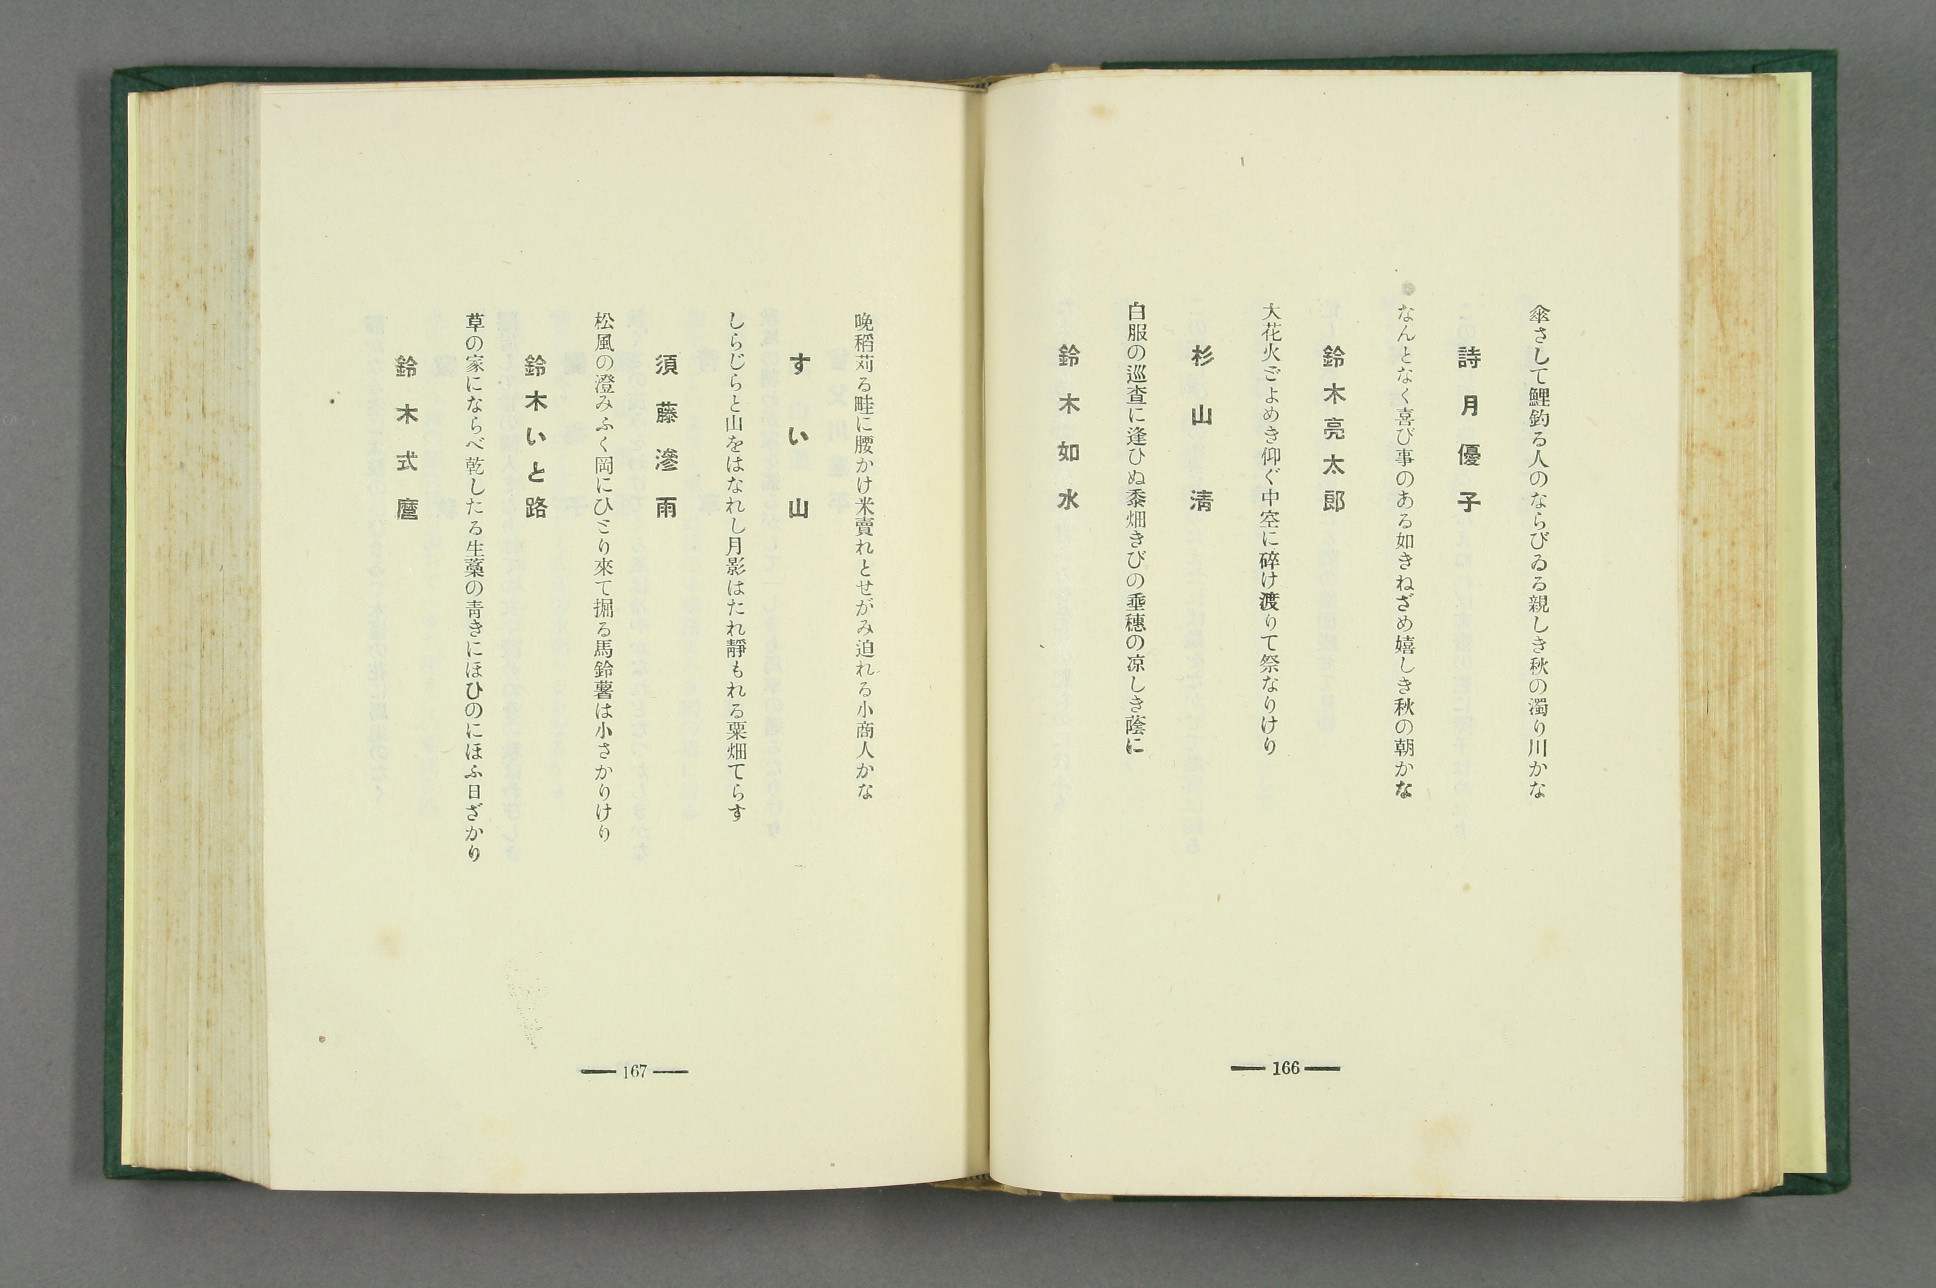 傘さして鯉釣る人のならびゐる親しき秋の濁り川かな
詩月優子
なんとなく喜び事のある如きねざめ嬉しき秋の朝かな
鈴木亮太郎
大花火どよめき仰ぐ中空に碎け渡りて祭なりけり
杉山淸
白服の巡査に逢ひぬ黍畑きびの垂穗の凉しき蔭に
鈴木如水
166
晩稻苅る畦に腰かけ米賣れとせがみ迫れる小商人かな
すい山
しらじらと山をはなれし月影はたれ靜もれる粟畑てらす
須藤滲雨
松風の澄みふく岡にひとり來て掘る馬鈴薯は小さかりけり
鈴木いと路
草の家にならべ乾したる生藁の青きにほひのにほふ日ざかり
鈴木式麿
167